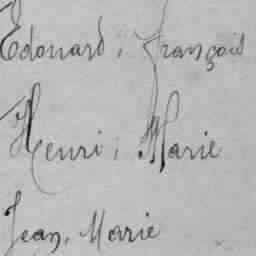 Edouard, François
Henri, Marie
Jean, Marie